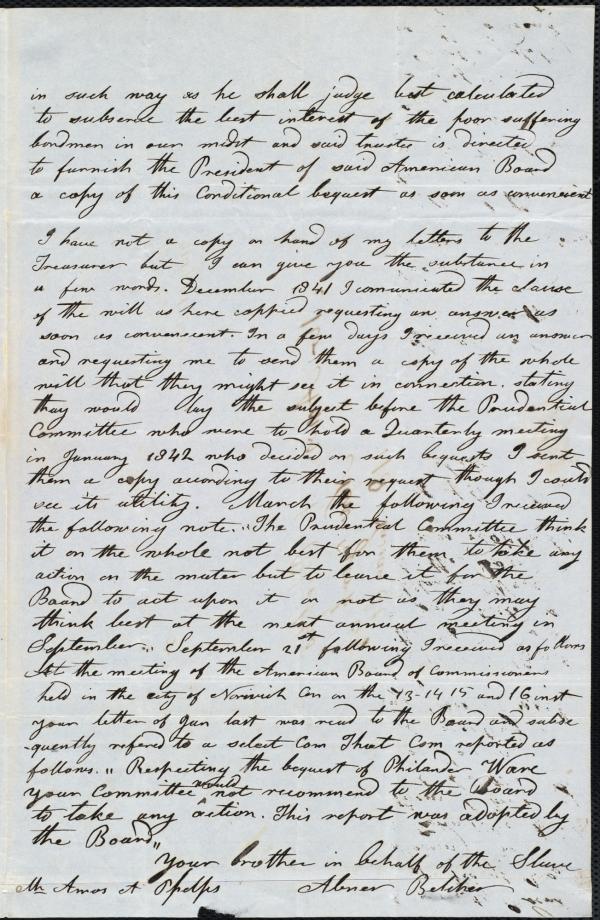 in such way as he shall judge best calculated
to subserve the best interest of the poor suffering
bondmen in our midst and said trustee is directed
to furnish the President of said American Board
a copy of this Conditional bequest as soon as convenient
I have not a copy on hand of my letters to the
Treasurer but I can give you the substance in
a few words. December 1841 I comunicated the Clause
of the will as here coppied requesting an answer as
soon as convenient. In a few days I received an answer
and requesting me to send them a copy of the whole
will that they might see it in connection. stating
they would lay the subject before the Prudential
Committee who were to hold a Quarterly meeting
in January 1842 who decided on such bequests I sent
them a copy according to their request though I could
see its utility. March the following I received
the following note. "The Prudential Committee think
it on the whole not best for them to take any
action on the mater but to leave it for the
Board to act upon it or not as they may
think best at the next annual meeting in
September." September 21st following I received as follows
At the meeting of the American Board of Commissioners
held in the city of Norwich Con on the 13-14 15 and 16 inst
your letter of Jan last was read to the Board and subse
-quently refered to a select Com That Com reported as
follows. " Respecting the bequest of Philander Ware
your Committee would not recommend to the Board
to take any action. This report was adopted by
the Board"
Your brother in behalf of the Slave
Mr Amos A Phelps Abner Belcher